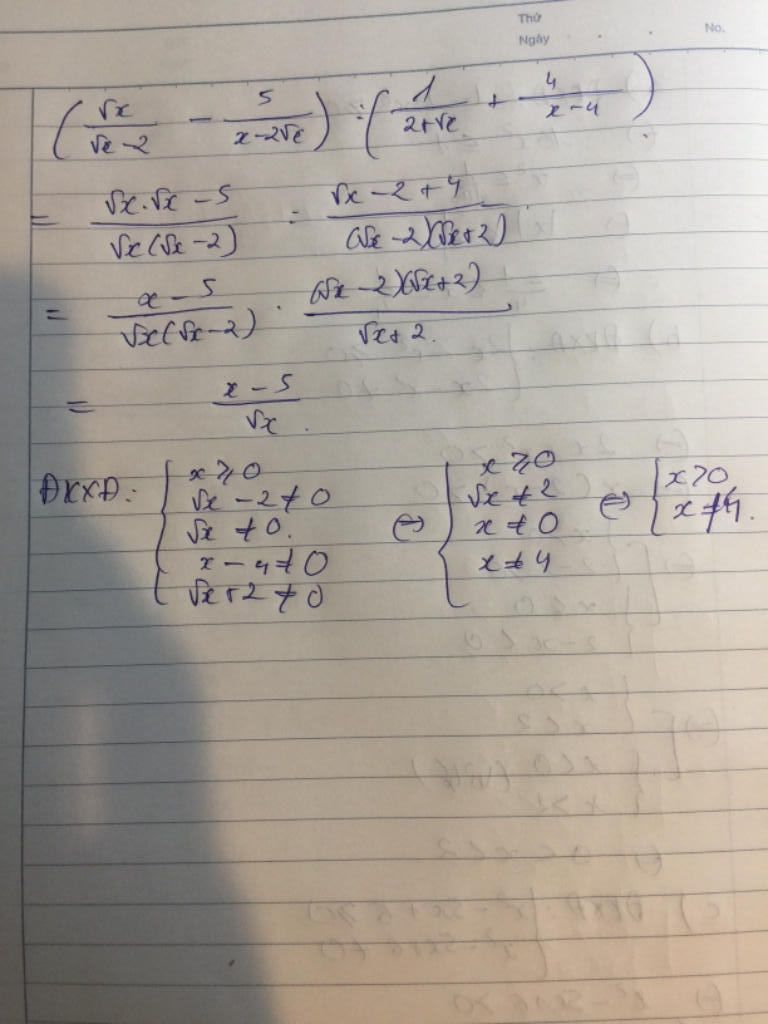 Thứ
Ngày
No.
(√x/(√x-2) - 5/(x-2√x)) : (1/(2+√x) + 4/(x-4))
= (√x.√x - 5)/(√x(√x-2)) : (√x-2+4)/((√x-2)(√x+2))
= (x-5)/(√x(√x-2)) . ((√x-2)(√x+2))/(√x+2)
= (x-5)/√x.
ĐKXĐ: { x ≥ 0 ⇔ { x ≥ 0 ⇔ { x > 0
√x - 2 ≠ 0 √x ≠ 2 x ≠ 4.
√x ≠ 0. x ≠ 0
x - 4 ≠ 0 x ≠ 4
√x + 2 ≠ 0